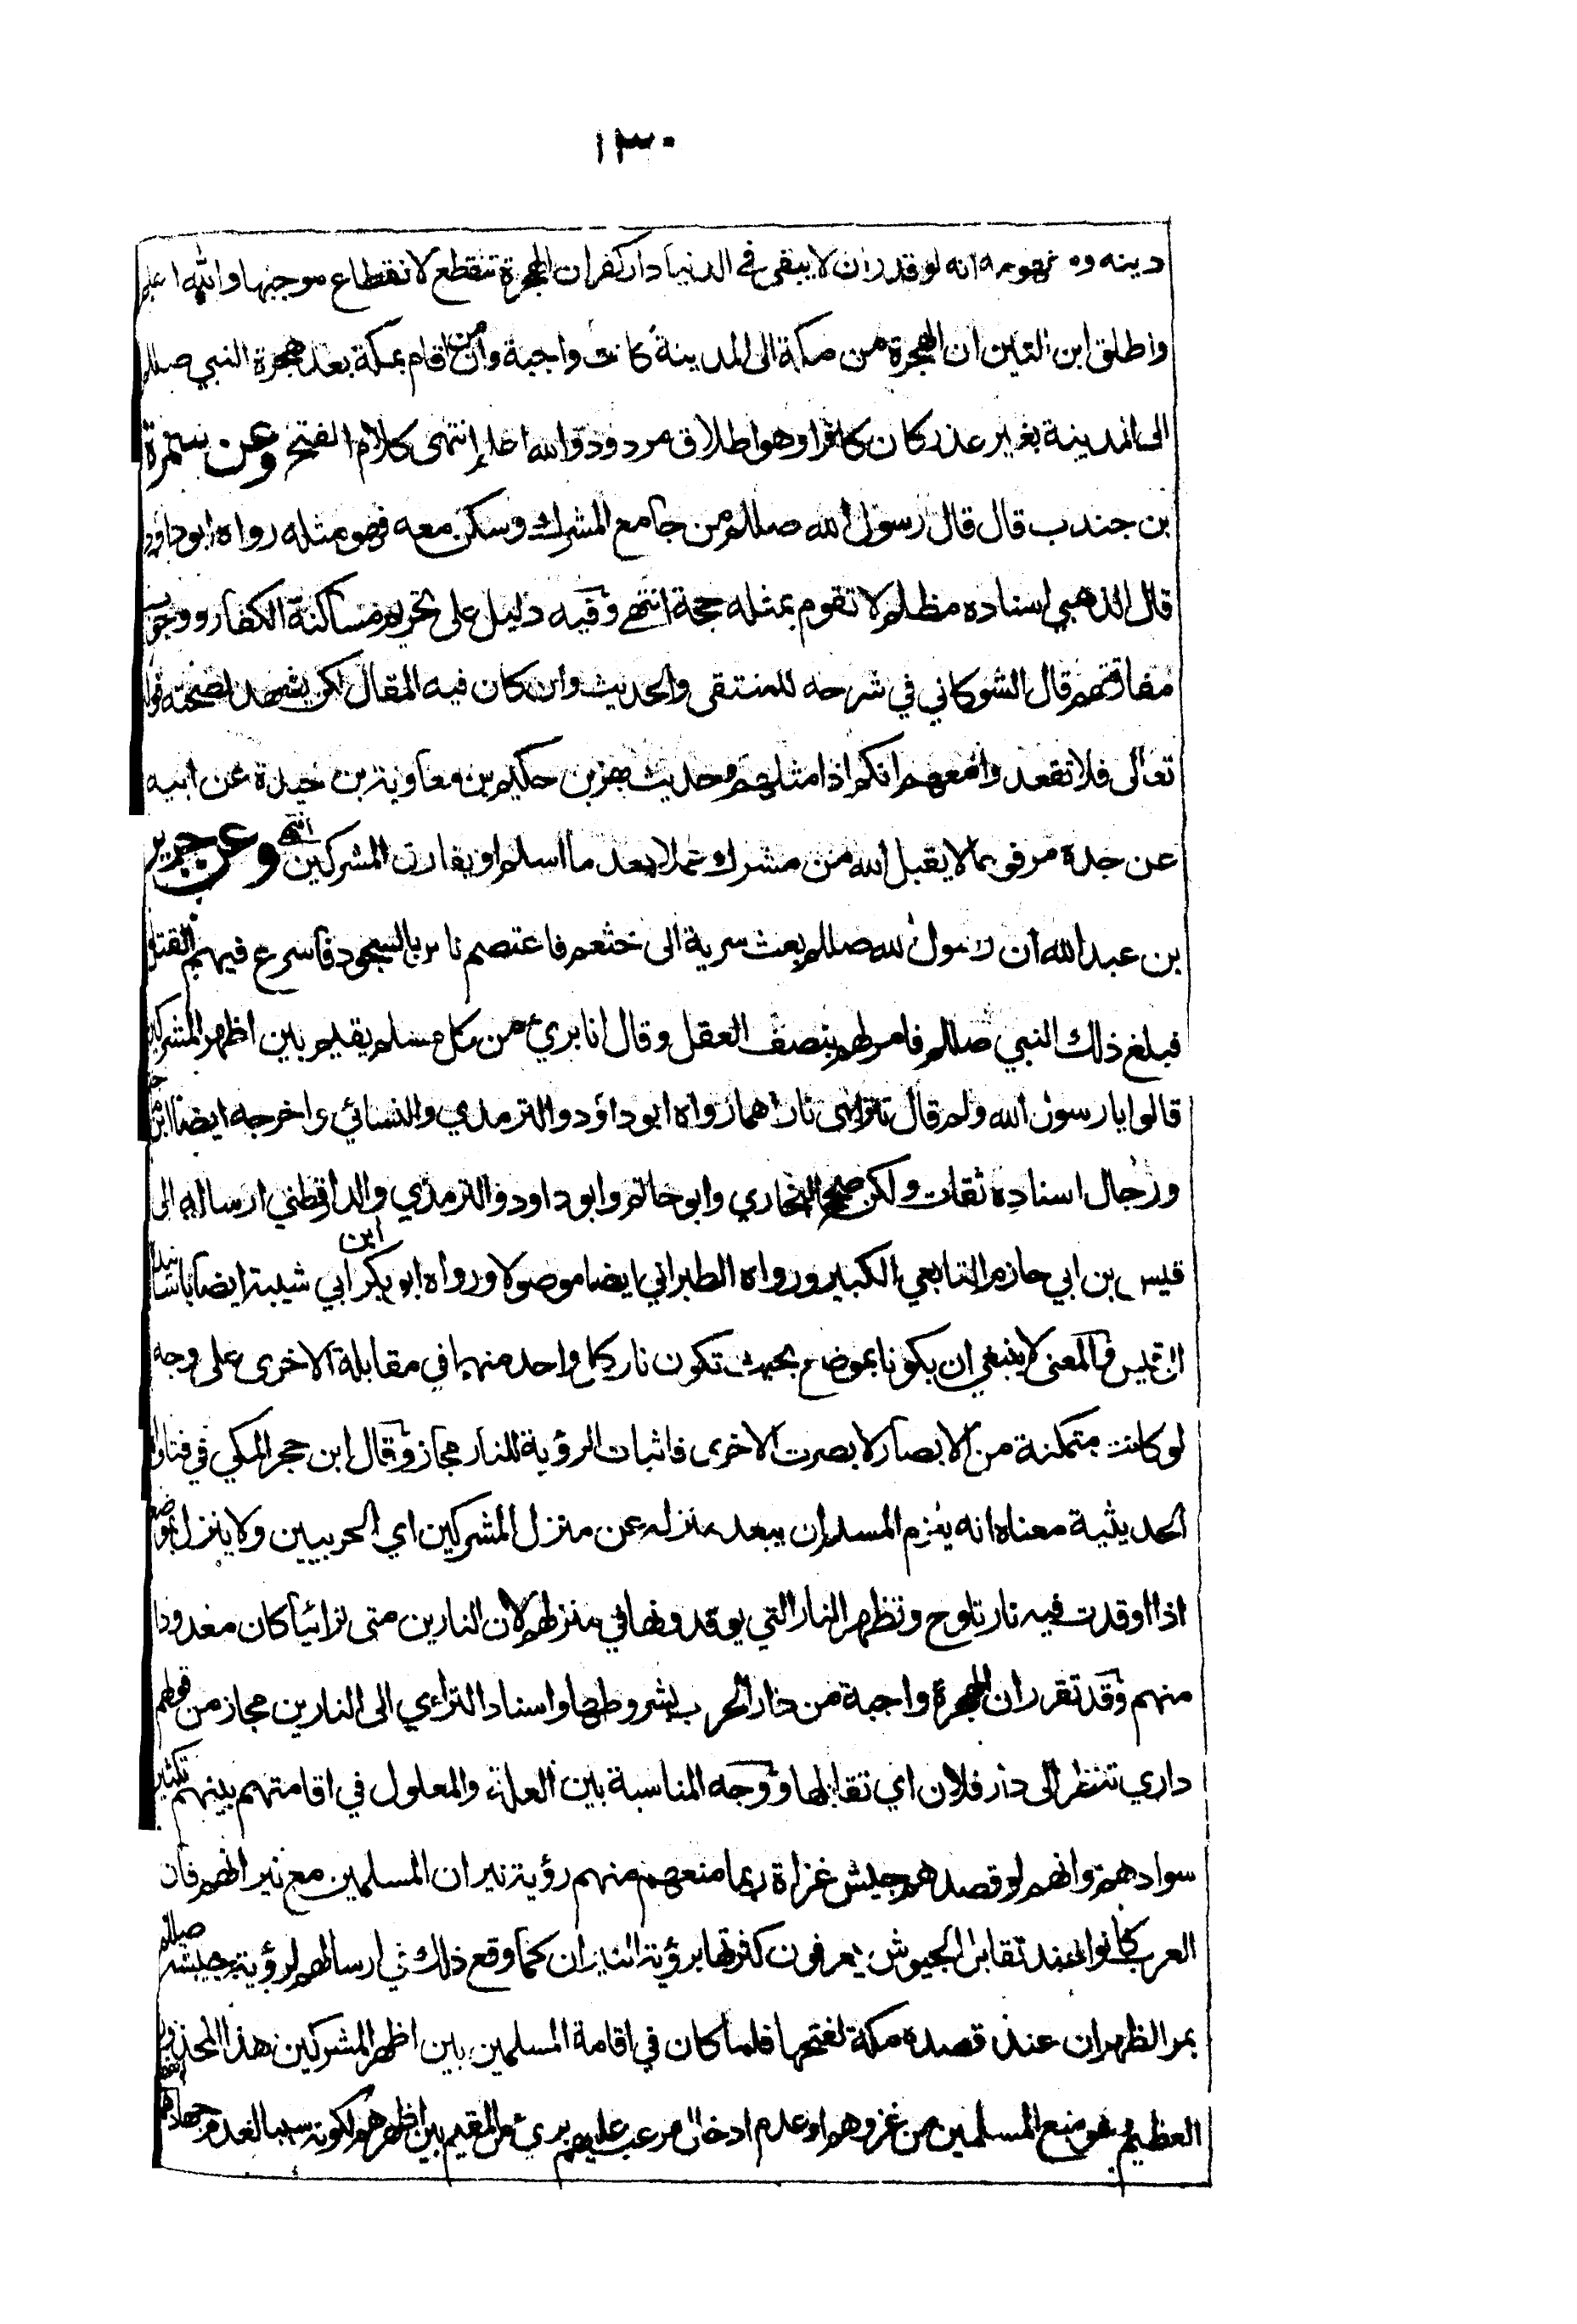 ١٣٠
دينه ومفهومه انه لو قدر ان لا يبقى في الدنيا دار كفر ان الهجرة تنقطع لانقطاع موجبها والله اعلم
واطلق ابن التين ان الهجرة من مكة الى المدينة كانت واجبة وان من اقام بمكة بعد هجرة النبي صللم
الى المدينة بغير عذر كان كافرا وهو اطلاق مردود والله اعلم انتهى كلام الفتح وعن سمرة
بن جندب قال قال رسول الله صللم من جامع المشرك وسكن معه فهو مثله رواه ابو داود
قال الذهبي اسناده مظلم لا تقوم بمثله حجة انتهى وفيه دليل على تحريم مساكنة الكفار ووجوب
مفارقتهم قال الشوكاني في شرحه للمنتقى والحديث وان كان فيه المقال لكن يشهد لصحته قوله
تعالى فلا تقعدوا معهم انكم اذا مثلهم وحديث بهز بن حكيم بن معاوية بن حيدة عن ابيه
عن جده مرفوعا لا يقبل الله من مشرك عملا بعد ما اسلم او يفارق المشركين انتهى وعن جرير
بن عبد الله ان رسول الله صللم بعث سرية الى خثعم فاعتصم ناس بالسجود فاسرع فيهم القتل
فبلغ ذلك النبي صللم فامر لهم بنصف العقل وقال انا بريء من كل مسلم يقيم بين اظهر المشركين
قالوا يا رسول الله ولم قال لا تترائى ناراهما رواه ابو داود والترمذي والنسائي واخرجه ايضا ابن
ورجال اسناده ثقات ولكن صحح البخاري وابو حاتم وابو داود والترمذي والدارقطني ارساله الى
قيس بن ابي حازم التابعي الكبير ورواه الطبراني ايضا موصولا ورواه ابو بكر ابن ابي شيبة ايضا باسناد
الى قيس والمعنى لا ينبغي ان يكونا بموضع بحيث تكون نار كل واحد منهما في مقابلة الاخرى على وجه
لو كانت متمكنة من الابصار لابصرت الاخرى فاثبات الرؤية للنار مجاز وقال ابن حجر المكي في فتاواه
الحديثية معناه انه يلزم المسلم ان يبعد منزله عن منزل المشركين اي الحربيين ولا ينزل بموضع
اذا اوقدت فيه نار تلوح وتظهر النار التي يوقدونها في منزلهم لان النارين متى ترائيا كان معدودا
منهم وقد تقرر ان الهجرة واجبة من دار الحرب بشروطها واسناد الترائي الى النارين مجاز من قولهم
داري تنظر الى دار فلان اي تقابلها ووجه المناسبة بين العلة والمعلول في اقامتهم بينهم تكثير
سوادهم وانهم لو قصدهم جيش غزاة ربما منعهم منهم رؤية نيران المسلمين مع نيرانهم فان
العرب كانوا عند تقابل الجيوش يعرفون كثرتها برؤية النيران كما وقع ذلك في ارسالهم لرؤية جيشه صللم
بمر الظهران عند قصده مكة لفتحها فلما كان في اقامة المسلمين بين اظهر المشركين هذا المحذور
العظيم هو منع المسلمين من غزوهم او عدم ادخال مرعب عليهم بريء من المقيم بين اظهرهم لكونه سببا لعدم جهادهم انتهى